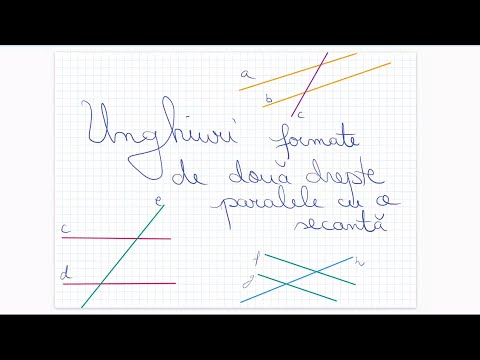 a
b
c
Unghiuri formate
de două drepte
paralele cu o
secantă
e
c
d
f
g
h